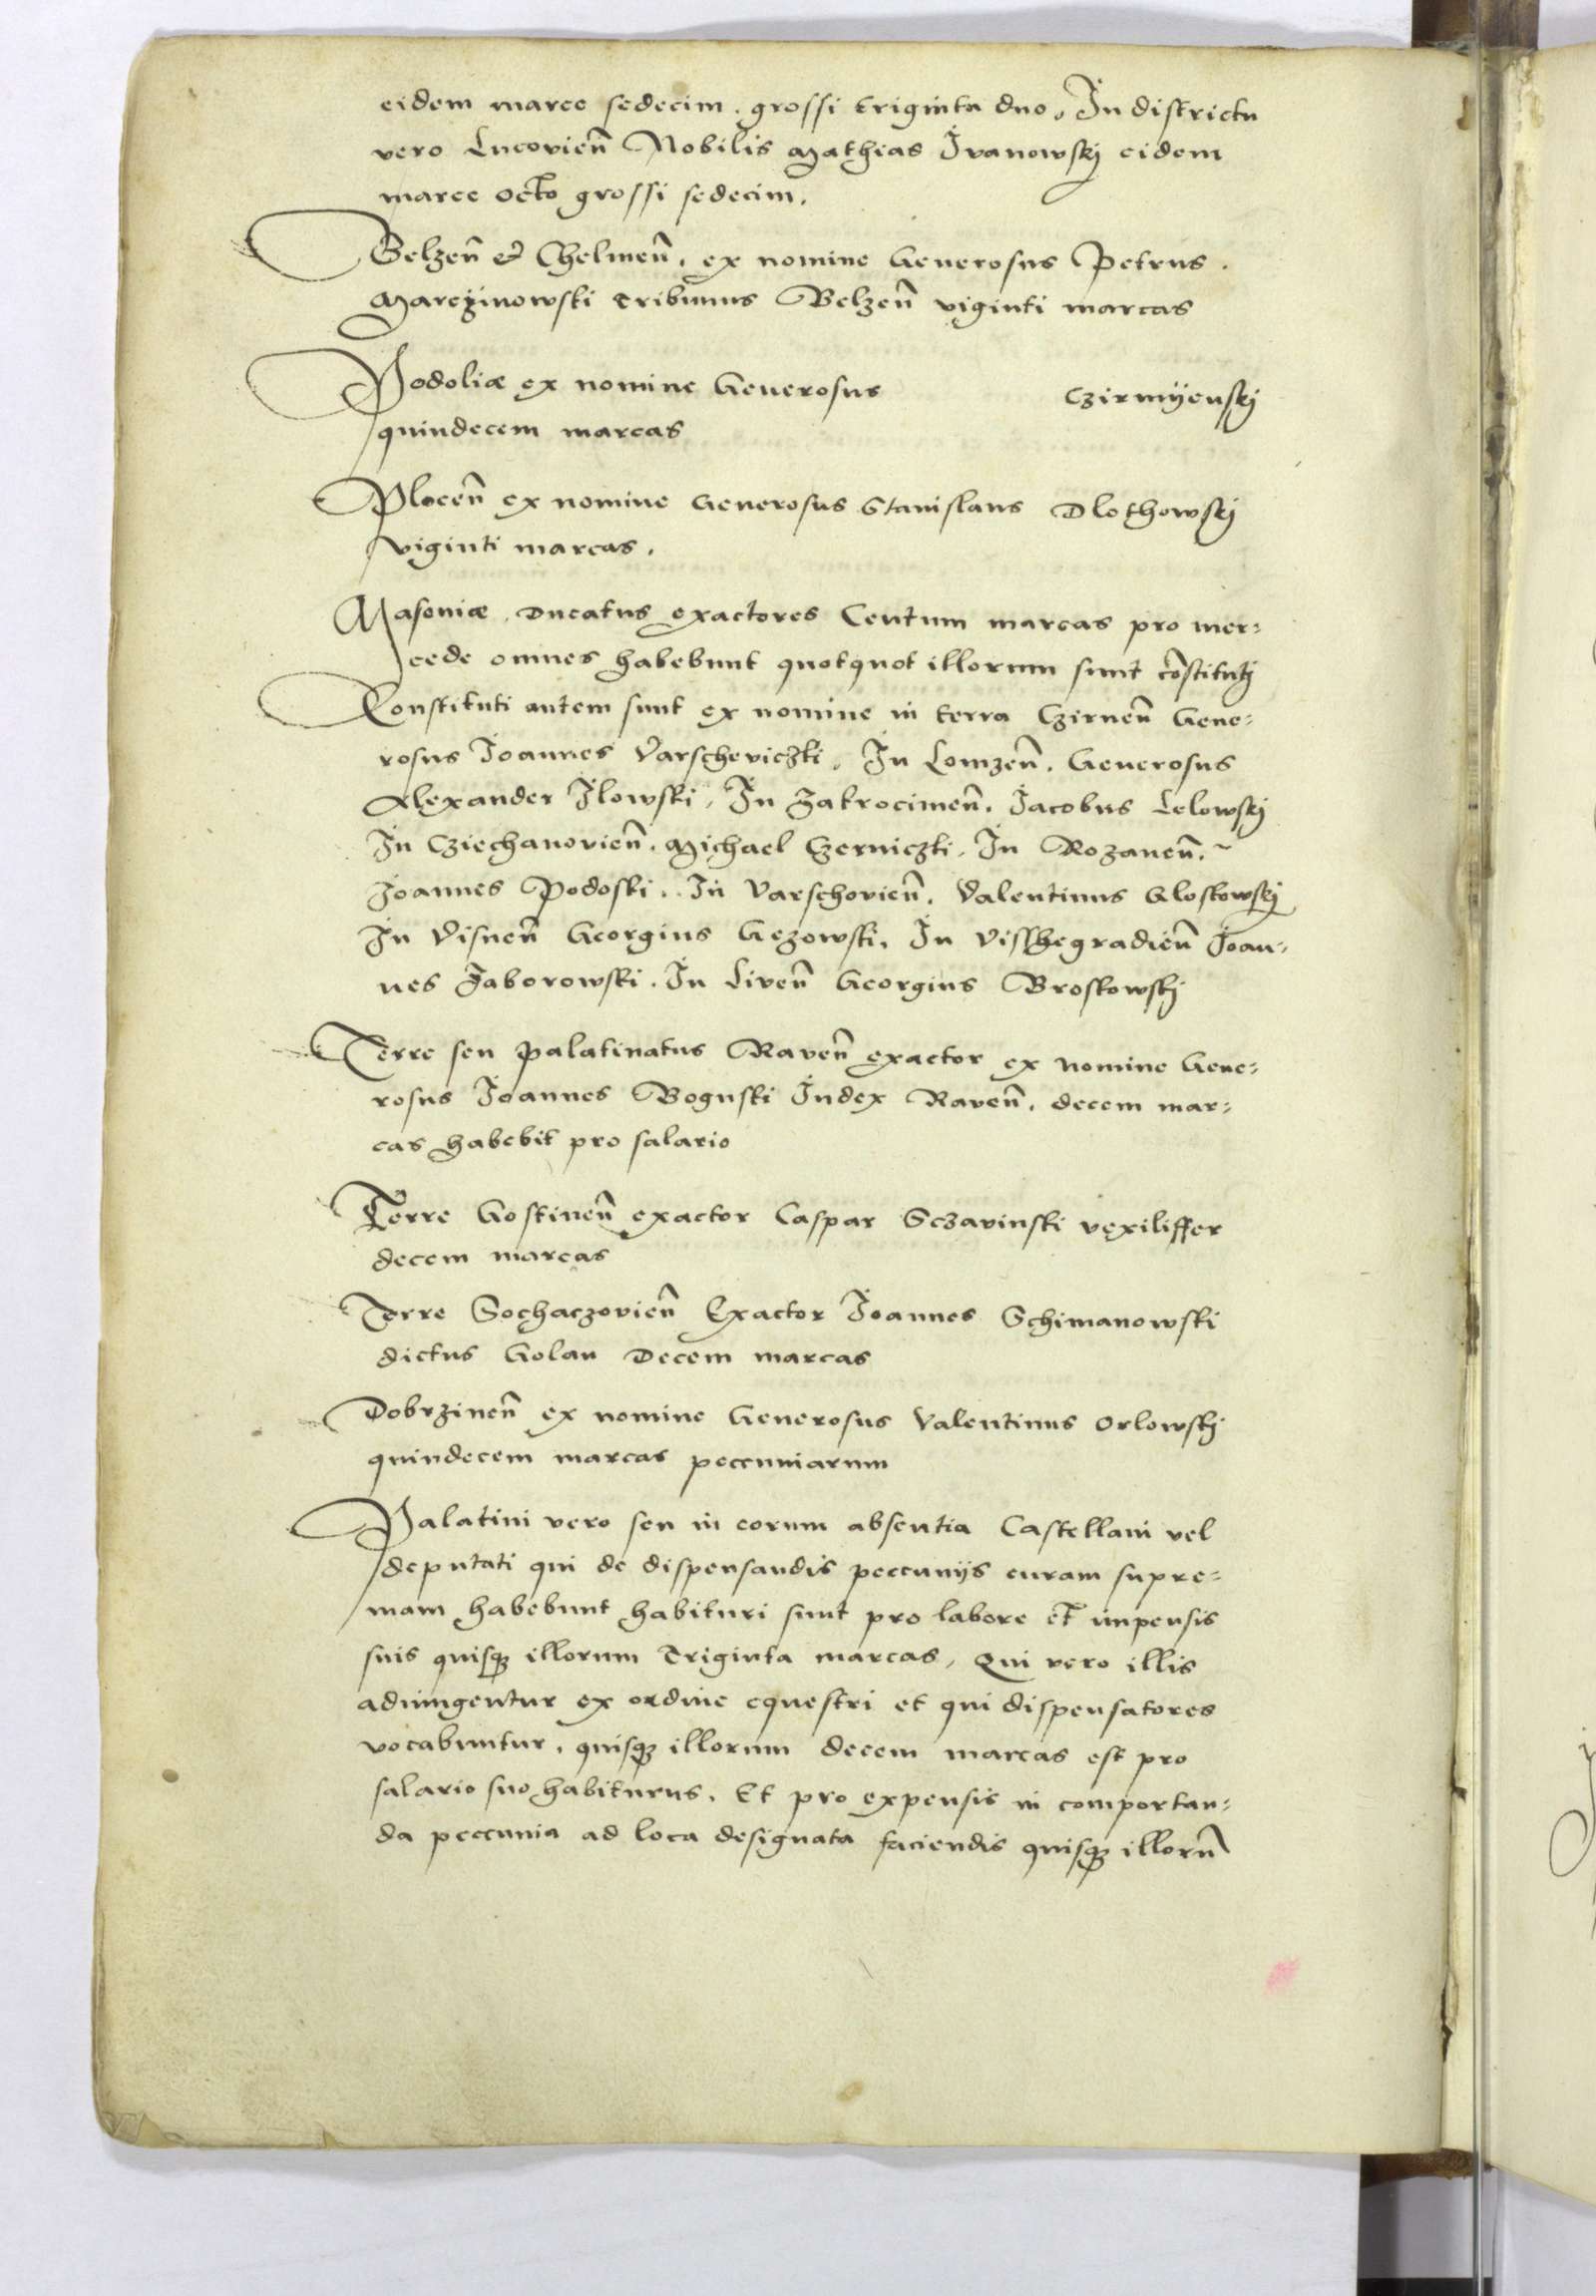 eidem marce sedecim. grossi triginta duo. In districtu
vero Lucovien̄ Nobilis Mathias Ivanowskj eidem
marce octo grossi sedecim.
Belzen̄ et Chelmen̄. ex nomine Generosus Petrus.
Marczinowski tribunus Belzen̄ viginti marcas
Podoliæ ex nomine Generosus Czirmÿenskj
quindecem marcas
Plocen̄ ex nomine Generosus Stanislaus Dlothowskj
viginti marcas.
Masoviæ Ducatus exactores Centum marcas pro mer=
cede omnes habebunt quotquot illorum sunt cōstitutj
Constituti autem sunt ex nomine in terra Czirnen̄ Gene=
rosus Joannes Varscheviczki. In Lomzen̄. Generosus
Alexander Ilowski. In Zakrocimen̄. Jacobus Lelowskj
In Cziechanovien̄. Michael Czerniczki. In Rozanen̄.
Joannes Podoski. In Varschovien̄. Valentinus Gloskowskj
In Visnen̄ Georgius Gezowski. In Visschegradien̄ Joan=
nes Zaborowski. In Liven̄ Georgius Broskowskj
Terre seu Palatinatus Raven̄ exactor ex nomine Gene=
rosus Joannes Boguski Iudex Raven̄. decem mar=
cas habebit pro salario
Terre Gostinen̄ exactor Caspar Sczavinski vexiliffer
decem marcas
Terre Sochaczovien̄ Exactor Joannes Schimanowski
dictus Golan Decem marcas
Dobrzinen̄ ex nomine Generosus Valentinus Orlowskj
quindecem marcas peccuniarum
Palatini vero seu in eorum absentia Castellani vel
deputati qui de dispensandis peccunijs curam supre=
mam habebunt habituri sunt pro labore et impensis
suis quisq; illorum Triginta marcas. Qui vero illis
adiungentur ex ordine equestri et qui dispensatores
vocabuntur. quisq; illorum decem marcas est pro
salario suo habiturus. Et pro expensis in comportan=
da peccunia ad loca designata faciendis quisq; illorū